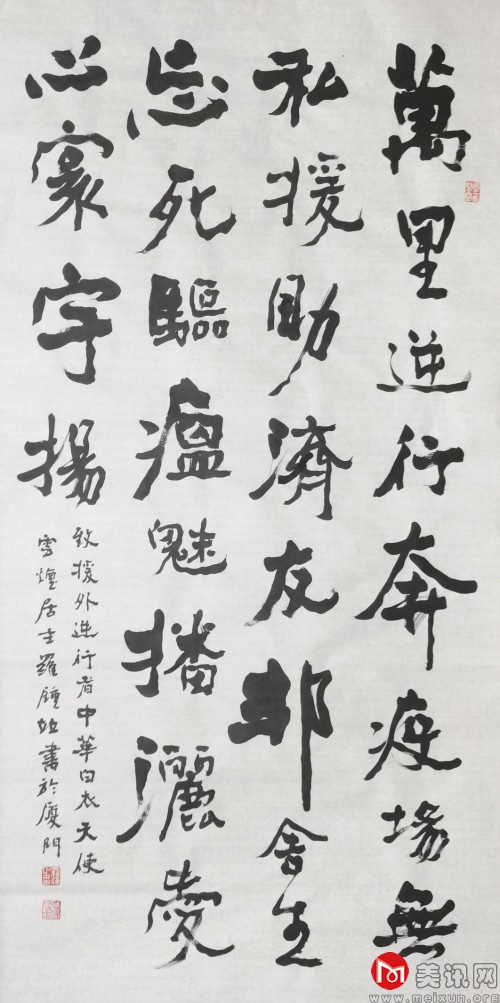 萬里逆行奔疫場無
私援助濟友邦舍生
忘死驅瘟魅播灑愛
心寰宇揚
致援外逆行者中華白衣天使
雪煙居士羅鍾書於廈門
美讯网
www.meixun.org